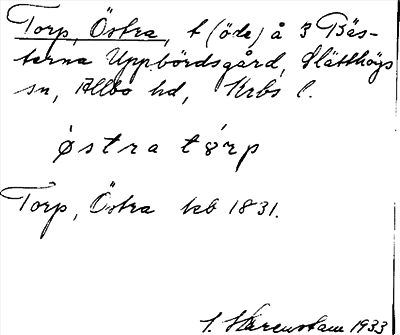 Torp, Östra, t (öde) å 3 Bäs-
terna Uppbördsgård, Slätthögs
sn, Allbo hd, Krbs l.
östra tørp
Torp, Östra kb 1831.
1933